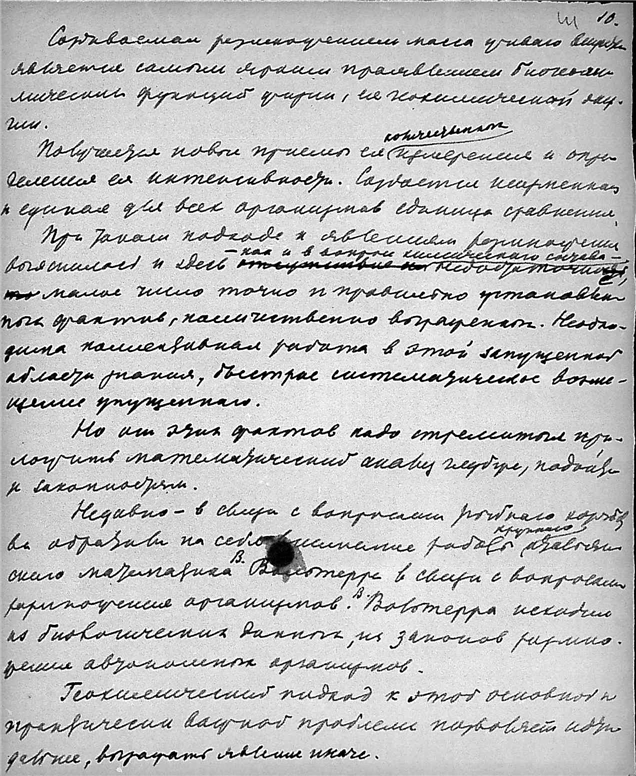 10.
Создаваемая размножением масса живого вещества
является самым ярким проявлением биохими-
ческих функций жизни, ея геохимической энер-
гии.
количественного
Получается новый прием ея измерения и опре-
деления ея интенсивности. Создается неизменная
и единая для всех организмов единица сравнения.
При таком подходе к явлениям размножения
- как и в вопросе химического состава -
выяснилось и здесь отсутствие недостаточное,
малое число точно и правильно установлен-
ных фактов, количественно выраженных. Необхо-
дима коллективная работа в этой запущенной
области знания, быстрое систематическое возме-
щение упущенного.
Но от этих фактов надо стремиться при-
ложить математический анализ глубже, подойти
к законностям.
Недавно - в связи с вопросами рыбного
крупного
обратили на себя внимание работы италиян-
ского математика В. Вольтерра в связи с вопросами
размножения организмов. В. Вольтерра исходил
из биологических данных, из законов размно-
жения автономных организмов.
Геохимический подход к этой основной и
практически важной проблеме позволяет идти
дальше, выражать явление иначе.